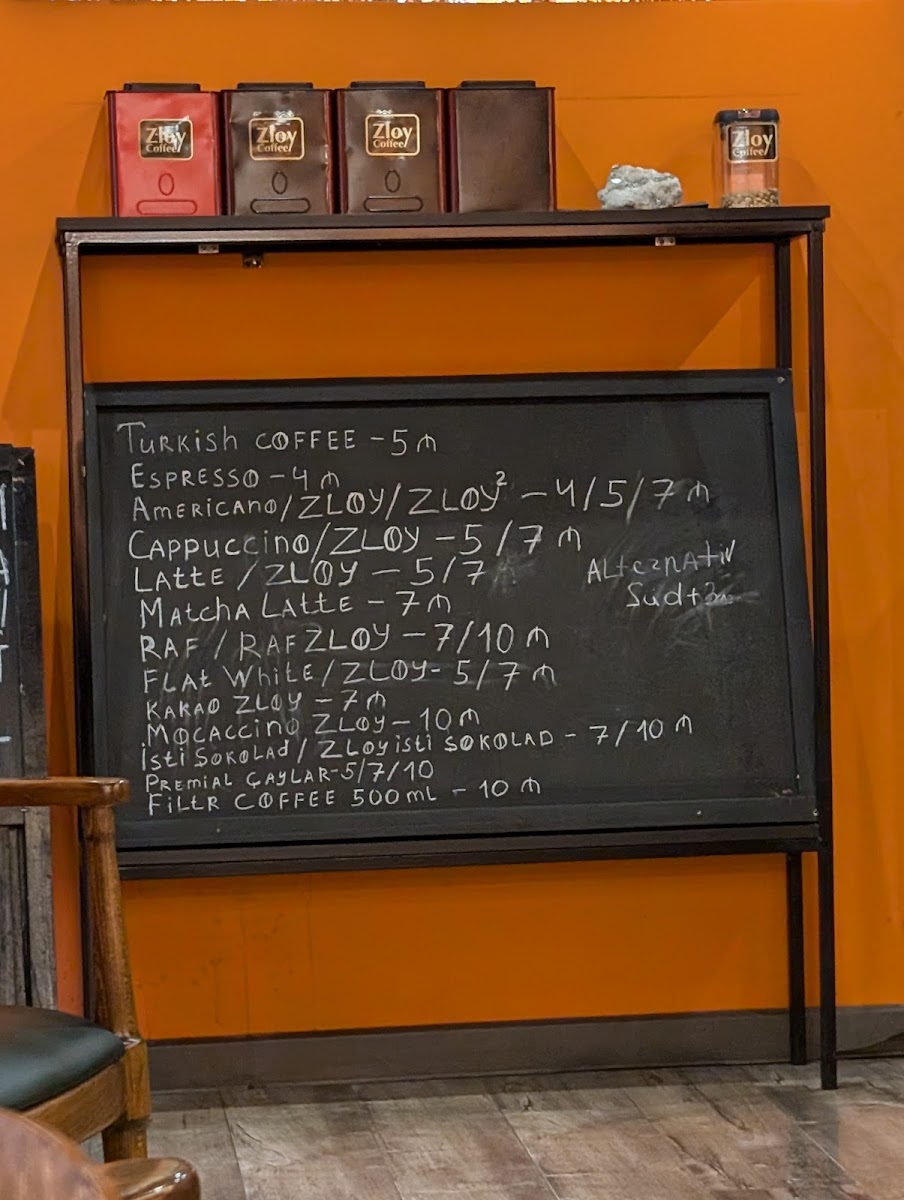 Zloy
Coffee
Zloy
Coffee
Zloy
Coffee
Zloy
Coffee
TURKISH COFFEE - 5 ₼
ESPRESSO - 4 ₼
AMERICANO/ZLOY/ZLOY² - 4/5/7 ₼
CAPPUCCINO/ZLOY - 5/7 ₼
LATTE / ZLOY - 5/7 ₼
MATCHA LATTE - 7 ₼
RAF / RAF ZLOY - 7/10 ₼
FLAT WHITE/ZLOY - 5/7 ₼
KAKAO ZLOY - 7 ₼
MOCACCINO ZLOY - 10 ₼
İSTİ ŞOKOLAD / ZLOY İSTİ ŞOKOLAD - 7/10 ₼
PREMIAL ÇAYLAR - 5/7/10
FILTR COFFEE 500 ML - 10 ₼
ALTERNATIV